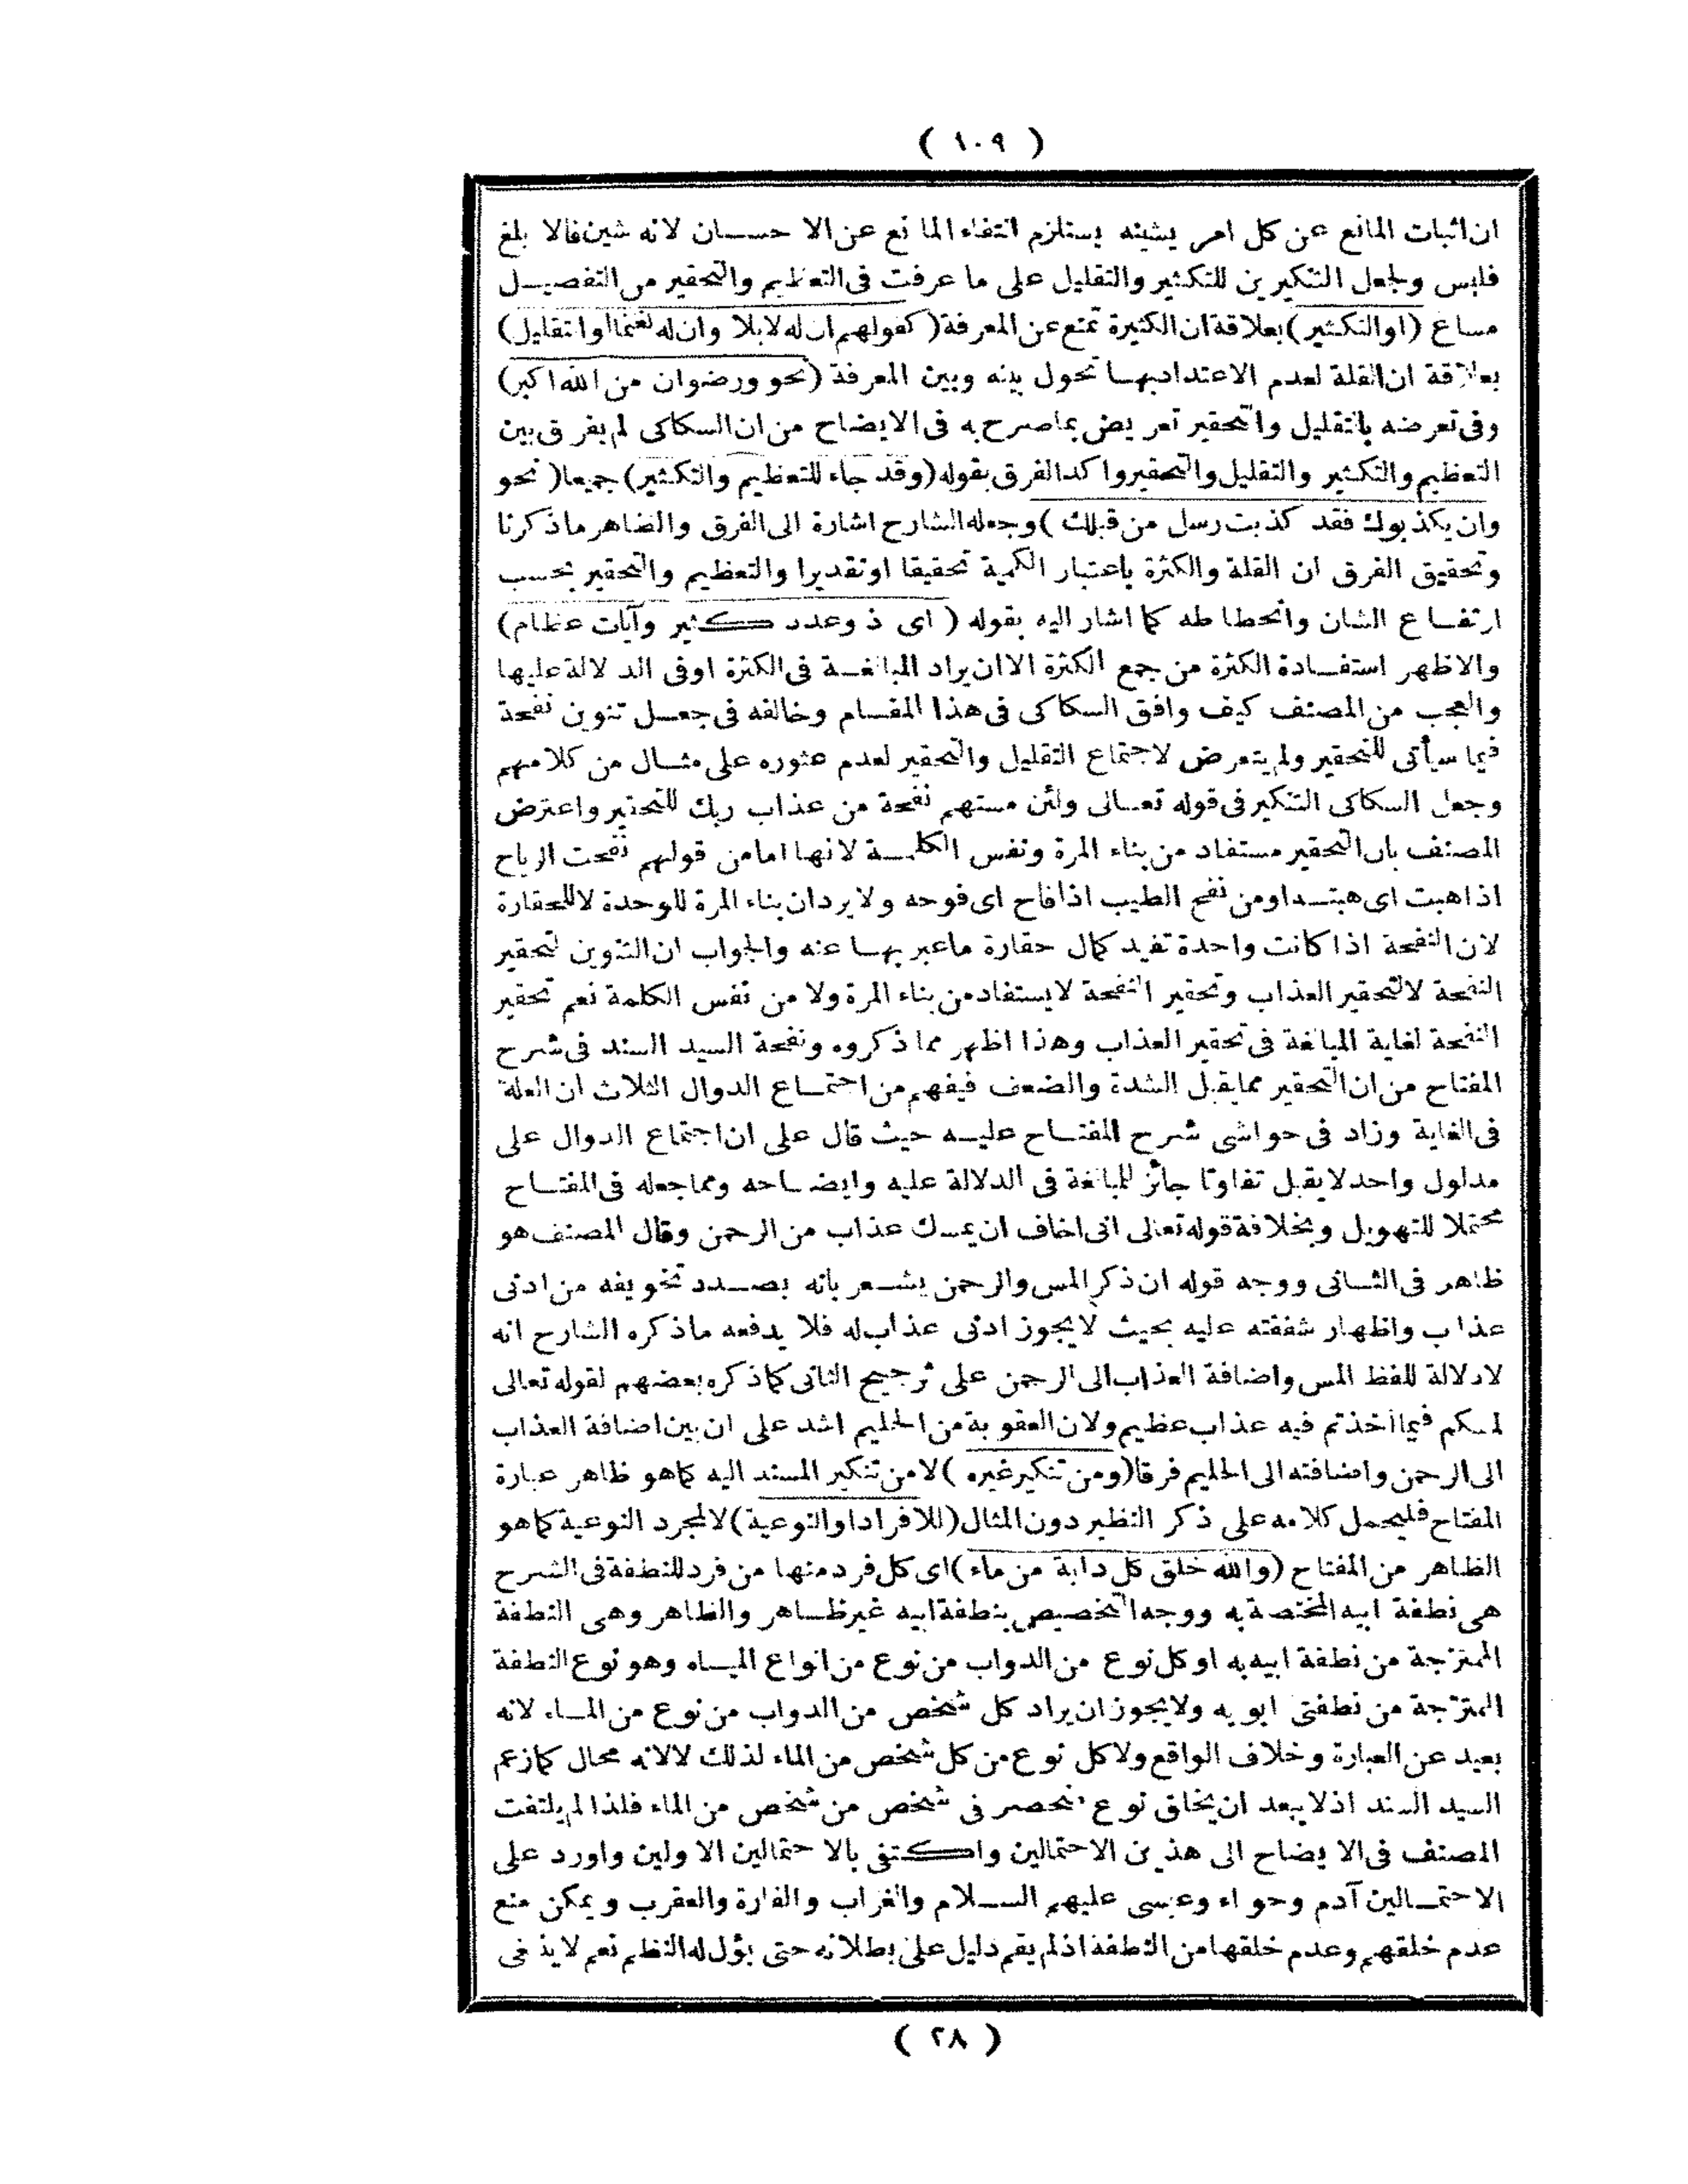 ( ١٠٩ )
ان اثبات المانع عن كل امر يشينه يستلزم انتفاء المانع عن الاحسان لانه شين فالا بلغ
فلبس ولجعل التنكيرين للتكثير والتقليل على ما عرفت فى التعظيم والتحقير من التفصيل
مساغ (اوالتكثير) بعلاقة ان الكثيرة تمنع عن المعرفة (كقولهم ان له لابلا وان له لغنما اوالتقليل)
بعلاقة ان القلة لعدم الاعتداد بها تحول بينه وبين المعرفة (نحو ورضوان من الله اكبر)
وفى تعرضه بالتقليل والتحقير تعريض بما صرح به فى الايضاح من ان السكاكى لم يفرق بين
التعظيم والتكثير والتقليل والتحقير واكد الفرق بقوله (وقد جاء للتعظيم والتكثير) جميعا (نحو
وان يكذبوك فقد كذبت رسل من قبلك) وجعله الشارح اشارة الى الفرق والضاهر ما ذكرنا
وتحقيق الفرق ان القلة والكثرة باعتبار الكمية تحقيقا او تقديرا والتعظيم والتحقير بحسب
ارتفاع الشان وانحطاطه كما اشار اليه بقوله ( اى ذوعدد كثير وآيات عظام)
والاظهر استفادة الكثرة من جمع الكثرة الا ان يراد المبالغة فى الكثرة اوفى الدلالة عليها
والعجب من المصنف كيف وافق السكاكى فى هذا المقام وخالفه فى جعل تنوين نفحة
فيما سيأتى للتحقير ولم يتعرض لاجتماع التقليل والتحقير لعدم عثوره على مثال من كلامهم
وجعل السكاكى التنكير فى قوله تعالى ولئن مستهم نفحة من عذاب ربك للتحقير واعترض
المصنف بان التحقير مستفاد من بناء المرة ونفس الكلمة لانها اما من قولهم نفحت الرياح
اذا هبت اى هبة او من نفح الطيب اذا فاح اى فوحه ولا يرد ان بناء المرة للوحدة لا للحقارة
لان النفحة اذا كانت واحدة تفيد كمال حقارة ما عبر بها عنه والجواب ان التنوين لتحقير
النفحة لا لتحقير العذاب وتحقير النفحة لا يستفاد من بناء المرة ولا من نفس الكلمة نعم تحقير
النفحة لغاية المبالغة فى تحقير العذاب وهذا اظهر مما ذكروه ونفحة السيد السند فى شرح
المفتاح من ان التحقير مما يقبل الشدة والضعف فيفهم من اجتماع الدوال الثلاث ان العلة
فى الغاية وزاد فى حواشى شرح المفتاح عليه حيث قال على ان اجتماع الدوال على
مدلول واحد لا يقبل تفاوتا جائز للمبالغة فى الدلالة عليه وايضاحه ومما جعله فى المفتاح
محتملا للتهويل وبخلافة قوله تعالى انى اخاف ان يمسك عذاب من الرحمن وقال المصنف هو
ظاهر فى الثانى ووجه قوله ان ذكر المس والرحمن يشعر بانه بصدد تخويفه من ادنى
عذاب واظهار شفقته عليه بحيث لا يجوز ادنى عذاب له فلا يدفعه ما ذكره الشارح انه
لا دلالة للفظ المس واضافة العذاب الى الرحمن على ترجيح الثانى كما ذكره بعضهم لقوله تعالى
لمسكم فيما اخذتم فيه عذاب عظيم ولان العقوبة من الحليم اشد على ان بين اضافة العذاب
الى الرحمن واضافته الى الحليم فرقا (ومن تنكير غيره) لا من تنكير المسند اليه كما هو ظاهر عبارة
المفتاح فليحمل كلامه على ذكر النظير دون المثال (للافراد اوالنوعية) لا لمجرد النوعية كما هو
الظاهر من المفتاح (والله خلق كل دابة من ماء) اى كل فرد منها من فرد للنطفة فى الشرح
هى نطفة ابيه المختصة به ووجه التخصيص بنطفة ابيه غير ظاهر والظاهر وهى النطفة
الممتزجة من نطفة ابيه به او كل نوع من الدواب من نوع من انواع المياه وهو نوع النطفة
الممتزجة من نطفتى ابويه ولا يجوز ان يراد كل شخص من الدواب من نوع من الماء لانه
بعيد عن العبارة وخلاف الواقع ولا كل نوع من كل شخص من الماء لذلك لا لانه محال كما زعم
السيد السند اذ لا يبعد ان يخلق نوع منحصر فى شخص من شخص من الماء فلذا لم يلتفت
المصنف فى الايضاح الى هذين الاحتمالين واكتفى بالاحتمالين الاولين واورد على
الاحتمالين آدم وحواء وعيسى عليهم السلام والغراب والفارة والعقرب ويمكن منع
عدم خلقهم وعدم خلقها من النطفة اذ لم يقم دليل على بطلانه حتى يؤل له النظم نعم لا ينفى
( ٢٨ )